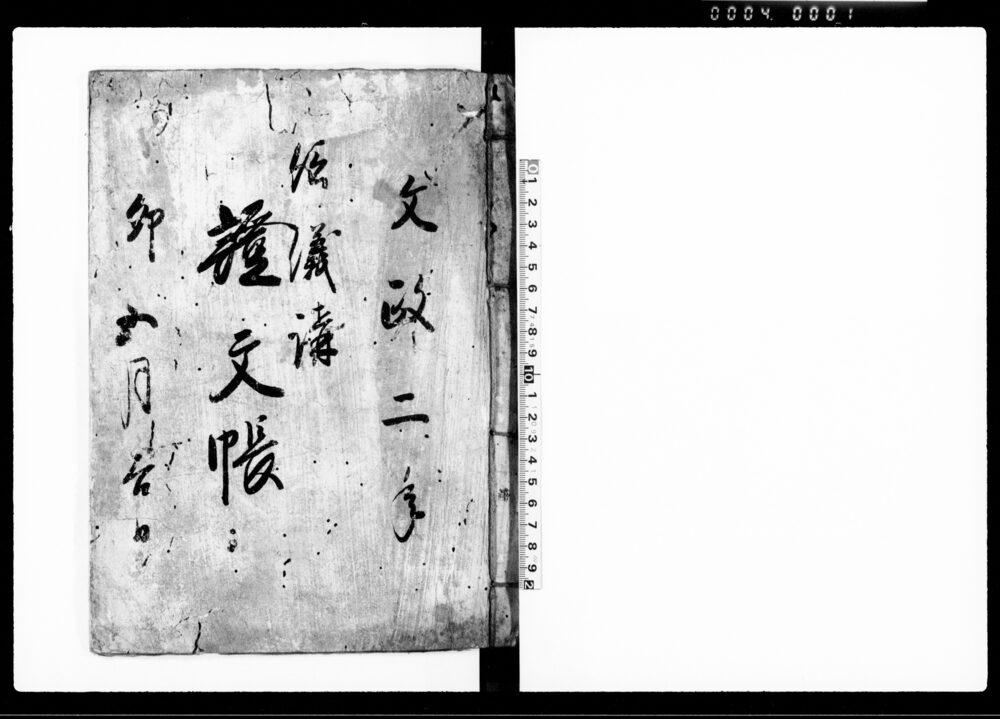 0004 0001
文政二年
儀講
證文帳
卯 月吉日
0 1 2 3 4 5 6 7 8 9 10 1 2 3 4 5 6 7 8 9 2